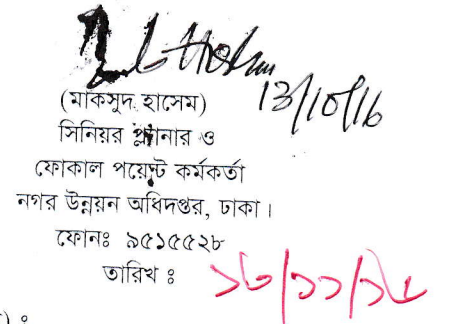 13/10/16
(মাকসুদ হাসেম)
সিনিয়র প্লানার ও
ফোকাল পয়েন্ট কর্মকর্তা
নগর উন্নয়ন অধিদপ্তর, ঢাকা।
ফোনঃ ৯৫১৫৫২৮
তারিখ ঃ
) ঃ